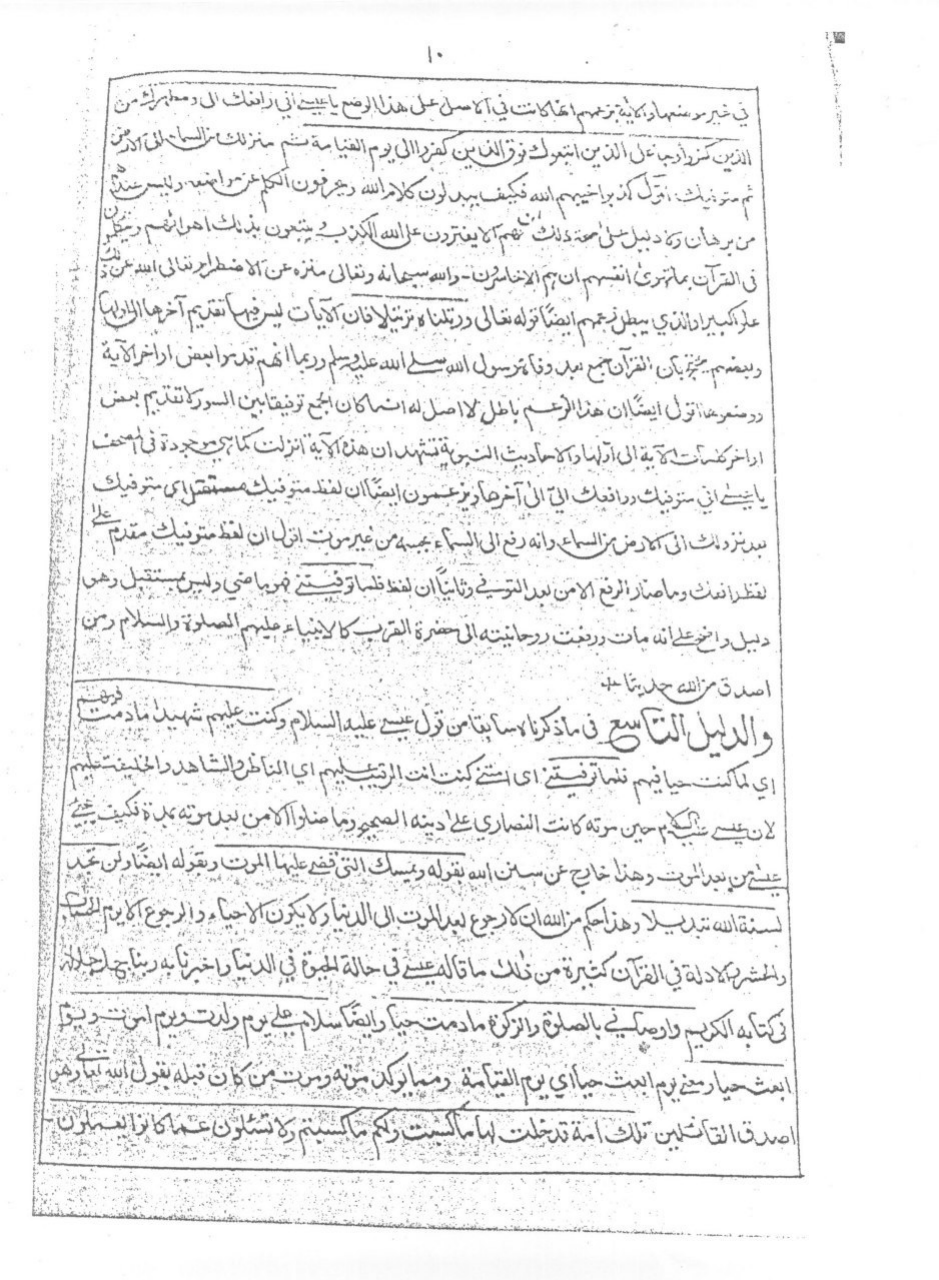 ١٠
في غير موضعها والآية بزعمهم انها كانت في الاصل على هذا الوضع يا عيسى اني رافعك الي ومطهرك من
الذين كفروا وجاعل الذين اتبعوك فوق الذين كفروا الى يوم القيامة ثم منزلك من السماء الى الارض
ثم متوفيك. اقول كذبوا خيبهم الله فكيف يبدلون كلام الله ويحرفون الكلم عن مواضعه وليس عندهم
من برهان ولا دليل على صحة ذلك فهم الا يفترون على الله الكذب ويتبعون بذلك اهوائهم ويتكلمون
في القرآن بما تهوى انفسهم ان هم الا خاسرون - والله سبحانه وتعالى منزه عن الاضطرار تعالى الله عن ذلك
علوا كبيرا والذي يبطل زعمهم ايضًا قوله تعالى ورتلناه ترتيلا فان الآيات ليس فيها تقديم آخرها الى اولها
وبعضهم يحتج بان القرآن جمع بعد وفاة رسول الله صلى الله عليه وسلم وربما انهم قدموا بعض اواخر الآية
ووضعوها اقول ايضًا ان هذا الزعم باطل لا اصل له انما كان الجمع توفيقا بين السور لا تقديم بعض
اواخر كلمات الآية الى اولها والاحاديث النبوية تشهد ان هذه الآية انزلت كما هي موجودة في المصحف
يا عيسى اني متوفيك ورافعك الي الى آخرها ويزعمون ايضًا ان لفظ متوفيك مستقبل اي متوفيك
بعد نزولك الى الارض من السماء وانه رفع الى السماء بجسمه من غير موت اقول ان لفظ متوفيك مقدم على
لفظ رافعك وما صار الرفع الا من بعد التوفي وثانيًا ان لفظ فلما توفيتني فهو ماضي وليس بمستقبل وهو
دليل واضح على انه مات ورفعت روحانيته الى حضرة القرب كالانبياء عليهم الصلوة والسلام ومن
اصدق من الله حديثا
والدليل التاسع في ما ذكرنا سابقا من قول عيسى عليه السلام وكنت عليهم شهيدا ما دمت فيهم
اي لما كنت حيا فيهم فلما توفيتني اى امتني كنت انت الرقيب عليهم اي الناظر والشاهد والخليفت عليهم
لان عيسى عليه السلام حين موته كانت النصارى على دينه الصحيح وما ضلوا الا من بعد موته بمدة فكيف يجيئ
عيسى من بعد الموت وهذا خارج عن سنن الله بقوله ويمسك التى قضى عليها الموت وبقوله ايضًا ولن تجد
لسنة الله تبديلا وهذا حكم من الله ان لا رجوع بعد الموت الى الدنيا ولا يكون الاحياء والرجوع الا يوم الحساب
والحشر والادلة في القرآن كثيرة من ذلك ما قاله عيسى في حالة الحيوة في الدنيا واخبرنا به ربنا جل جلاله
في كتابه الكريم واوصاني بالصلوة والزكوة ما دمت حيا وايضًا سلام علي يوم ولدت ويوم اموت ويوم
ابعث حيا ومعنى يوم ابعث حيا اي يوم القيامة ومما يوكد موته وموت من كان قبله بقول الله تعالى وهو
اصدق القائلين تلك امة قد خلت لها ما كسبت ولكم ما كسبتم ولا تسئلون عما كانوا يعملون -